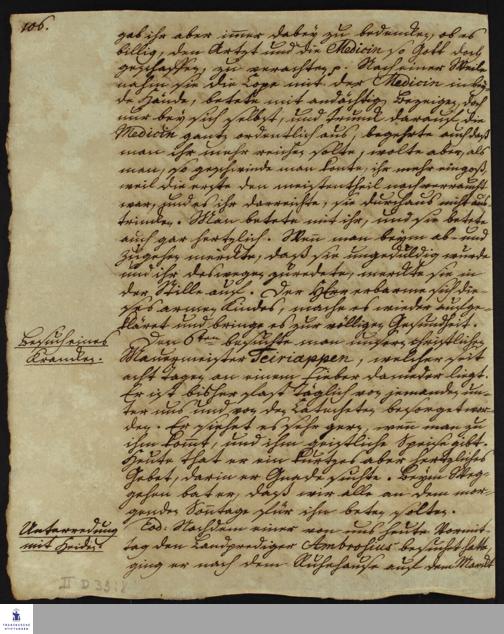 106.
gab ihr aber immer dabey zu bedencken, ob es
billig, den Artzt und die Medicin so Gott doch
geschaffen, zu verachten p. Nach einer Weile
nahm sie die Tope mit der Medicin in bey-
de Hände, betete mit andächtigen Bezeigen, doch
nur bey sich selbst, und trunck darauf die
Medicin gantz ordentlich aus, begehrte auch daß
man ihr mehr reichen solte, wolte aber, als
man, so geschwinde man konte, ihr mehr eingoß,
weil die erste den meistentheil
war, und es ihr darreichte, sie durchaus nicht aus
trincken. Man betete mit ihr, und sie betete
auch gar hertzlich. Wenn man beym ab- und
zugehen merckte, daß sie ungeduldig wurde
und ihr deswegen zuredete, merckte sie in
der Stille auf. Der HErr erbarme sich die-
ses armen Kindes, mache es wieder aufge-
kläret und bringe es zur völligen Gesundheit.
Besuch eines
Krancken.
Den 6ten besuchte man unsern christlichen
Mauermeister Teiriappen, welcher seit
acht Tagen an einem Fieber darnieder liegt.
Er ist bisher fast täglich von jemanden un-
ter uns und von den Catecheten besorget wor-
den. Er siehet es sehr gern, wenn man zu
ihm kommt, und ihm geistliche Speise gibt.
Heute that er ein kurtzes aber hertzliches
Gebet, darin er Gnade suchte. Beym Weg-
gehen bat er, daß wir alle an dem mor-
genden Sontage für ihn beten solten.
Unterredung
mit Heiden.
Eod. Nachdem einer von uns heute Vormit-
tag den Landprediger Ambrosius besucht hatte,
ging er nach dem Ruhehause auf dem Marckt
II D 33:8
FRANCKESCHE
STIFTUNGEN